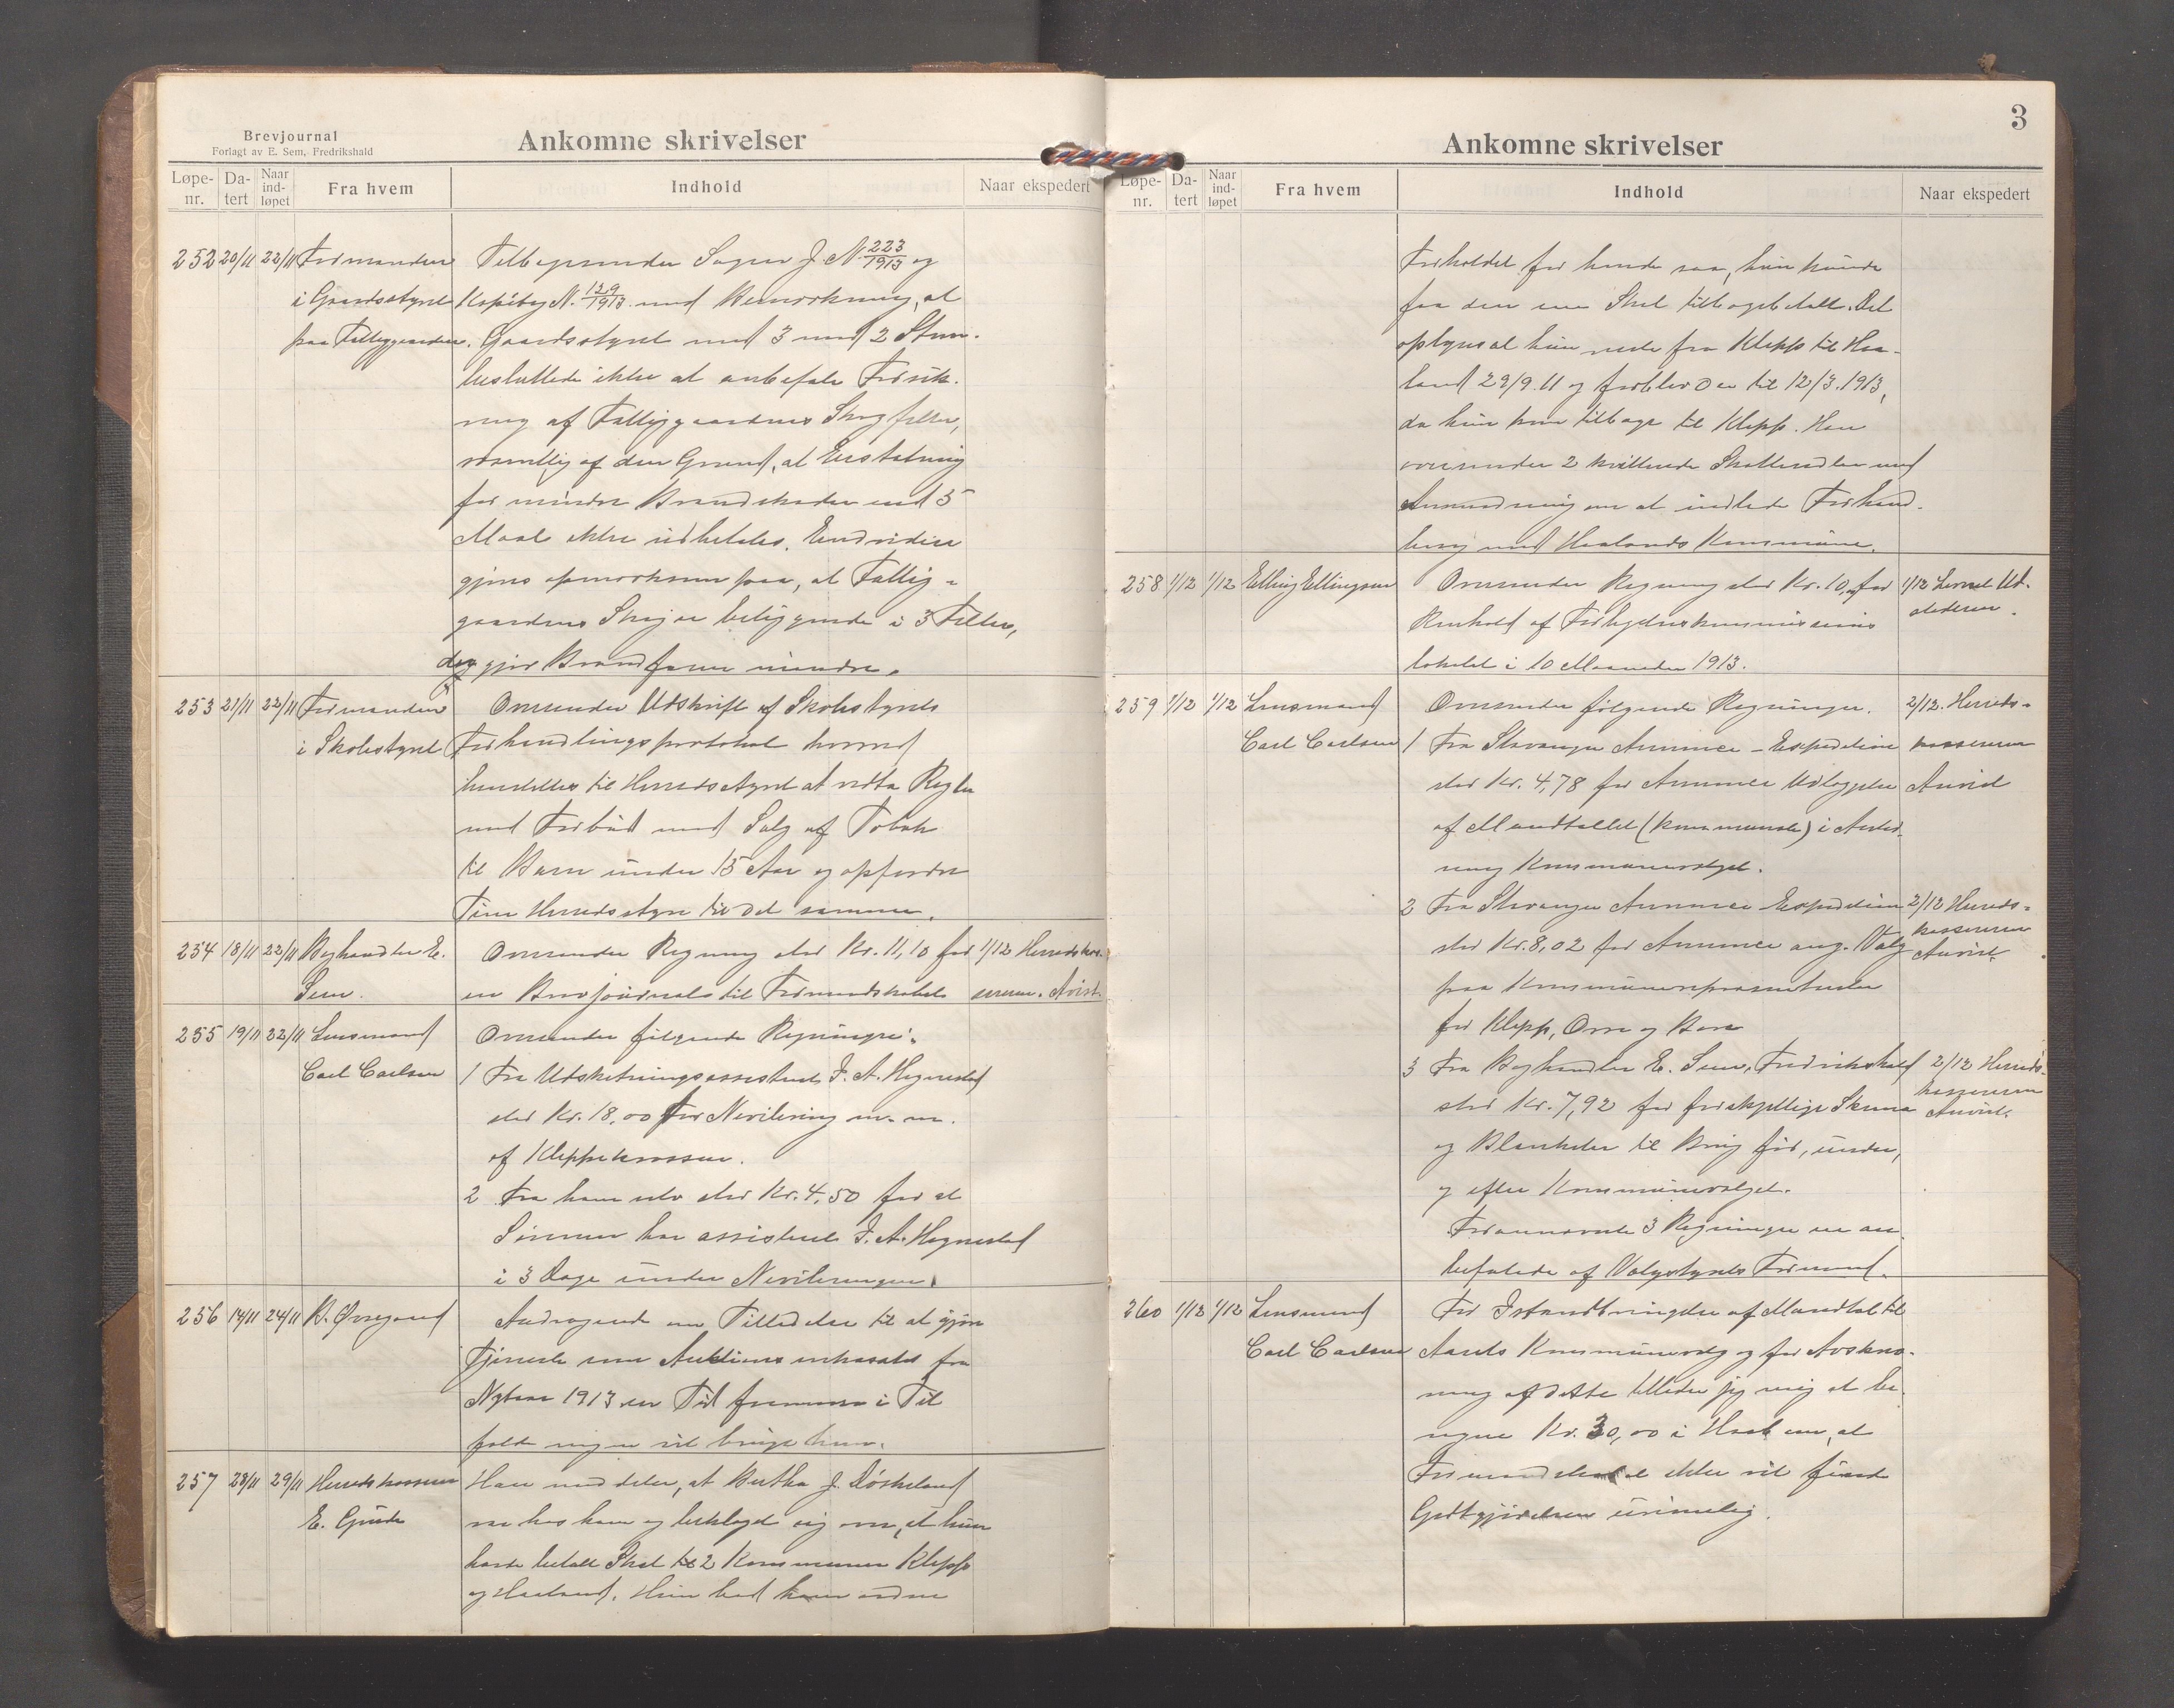 Brevjournal
Forlagt av E. Sem, Fredrikshald
Ankomne skrivelser
Løpe-nr. Da-tert Naar ind-løpet Fra hvem Indhold Naar ekspedert
252 20/11 22/11 Formanden Tilbagesender Sagen J. N. 223/1913 og
i Gaardsstyret Kopibog N. 129/1913 med Bemerkning, at
paa Fattiggaarden. Gaardsstyret med 3 mod 2 Stem.
besluttede ikke at anbefale Forsik-
ring af Fattiggaardens Skogfelter,
væsentlig af den Grund, at Erstatning
for mindre Brandskader end 5
Maal ikke udbetales. Endvidere
gjøres opmerksom paa, at Fattig-
gaardens Skog er beliggende i 3 Felter,
der gjør Brandfaren mindre.
253 21/11 22/11 Formanden Oversender Udskrift af Skolestyrets
i Skolestyret Forhandlingsprotokol hvorved
henstilles til Herredsstyret at vedta Regler
med Forbud mod Salg af Tobak
til Barn under 15 Aar og opfordre
Time Herredsstyre til det samme.
254 18/11 22/11 Boghandler E. Oversender Regning stor Kr. 11,10 for 1/12 Herredskas-
Sem. en Brevjournals til Formandskabet sereren. Avist.
255 19/11 22/11 Lensmand Oversender følgende Regninger:
Carl Carlsen 1 Fra Udskiftningsassistent J. A. Hognestad
stor Kr. 18,00 for Nivilering m. m.
af Kleppekrossen.
2 Fra ham selv stor Kr. 4,50 for at
Sønnen har assisteret J. A. Hognestad
i 3 Dage under Nivileringen.
256 14/11 24/11 B. Øvregaard Andragende om Tilladelse til at gjøre
Tjeneste som Auktionsinkassator fra
Nytaar 1913 en Tid fremover i Til
fælde nogen vil bruge ham.
257 28/11 29/11 Herredskasserer Han meddeler, at Bertha J. Røskeland
E. Grude var hos ham og beklaget sig over, at hun
havde betalt Skat til 2 Kommuner Klepp
og Haaland. Hun bad ham ordne
3
Ankomne skrivelser
Løpe-nr. Da-tert Naar ind-løpet Fra hvem Indhold Naar ekspedert
Forholdet for hende saa, hun kunde
faa den ene Skat tilbagebetalt. Det
oplyses at hun reiste fra Klepp til Haa-
land 29/9.11 og forblev der til 12/3.1913,
da hun kom tilbage til Klepp. Han
oversender 2 kvitterede Skattesedler med
Anmodning om at indlede Forhand-
ling med Haalands Kommune.
258 1/12 1/12 Elling Ellingsen Oversender Regning stor Kr. 10,00 for 1/12 Lensm. Ud-
Renhold af Forligelseskommissionens
lokale i 10 Maaneder 1913.
259 1/12 1/12 Lensmand Oversender følgende Regninger. 2/12. Herreds-
Carl Carlsen 1 Fra Stavanger Annonce-Expedition kassereren
stor Kr. 4,78 for Annonce Udlæggelse Anvist
af Mandtallet (kommunale) i Anled-
ning Kommunevalget.
2 Fra Stavanger Annonce Expedition 2/12 Herreds-
stor Kr. 8,02 for Annonce ang. Valg kassereren
Anvist.
paa Kommunerepræsentanter
for Klepp, Orre og Bore
3 Fra Boghandler E. Sem, Fredrikshald 2/12 Herreds-
kassereren
stor Kr. 7,92 for forskjellige Skema Anvist.
og Blanketter til Brug før, under,
og efter Kommunevalget.
Forannævnte 3 Regninger er an-
befalede af Valgstyrets Formand.
260 1/12 1/12 Lensmand For Istandbringelse af Mandtal til
Carl Carlsen Aarets Kommunevalg og for Avskriv-
ning af dette tillader jeg mig at be-
regne Kr. 30,00 i Haab om, at
Formandskabet ikke vil finde
Godtgjørelsen urimelig.